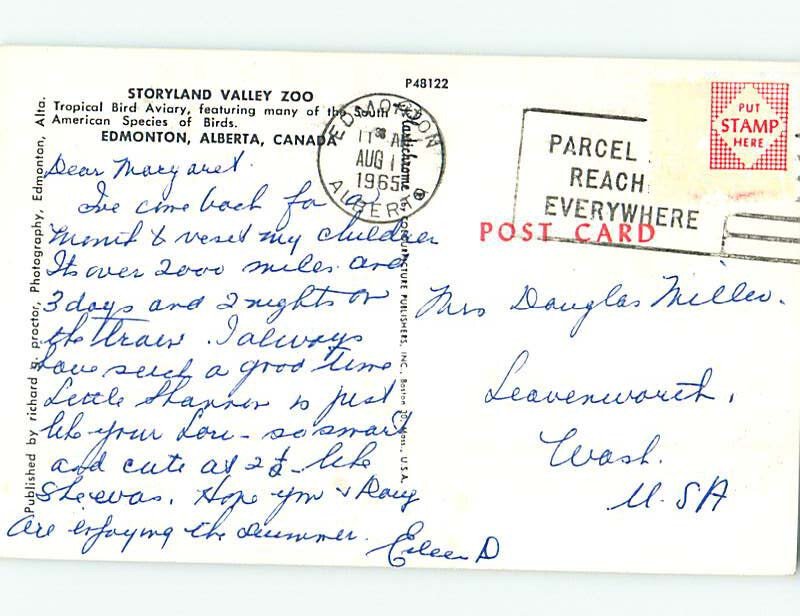 P48122
STORYLAND VALLEY ZOO
Tropical Bird Aviary, featuring many of the South
American Species of Birds.
EDMONTON, ALBERTA, CANADA
Dear Margaret.
I've come back for a
month & veset my children
Its over 2000 miles and
3 days and 2 nights on
the train. I always
have such a good time
Little Shannon is just
like your Lori - so smart
and cute at 2½ - like
She was. Hope you & Doug
are enjoying the summer.
Eileen D
Published by richard g. proctor, Photography, Edmonton, Alta.
Plastichrome ® by COLOURPICTURE PUBLISHERS, INC., Boston 30, Mass., U.S.A.
EDMONTON
11 A
AUG 1
1965
ALBERTA
PARCEL
REACH
EVERYWHERE
PUT
STAMP
HERE
POST CARD
Mrs Douglas Miller.
Leavenworth,
Wash.
U.S.A